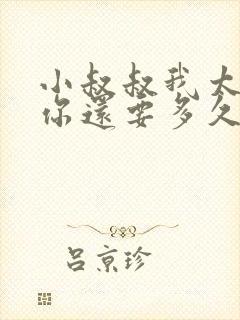 小叔叔我太
你還要多久
呂京珍